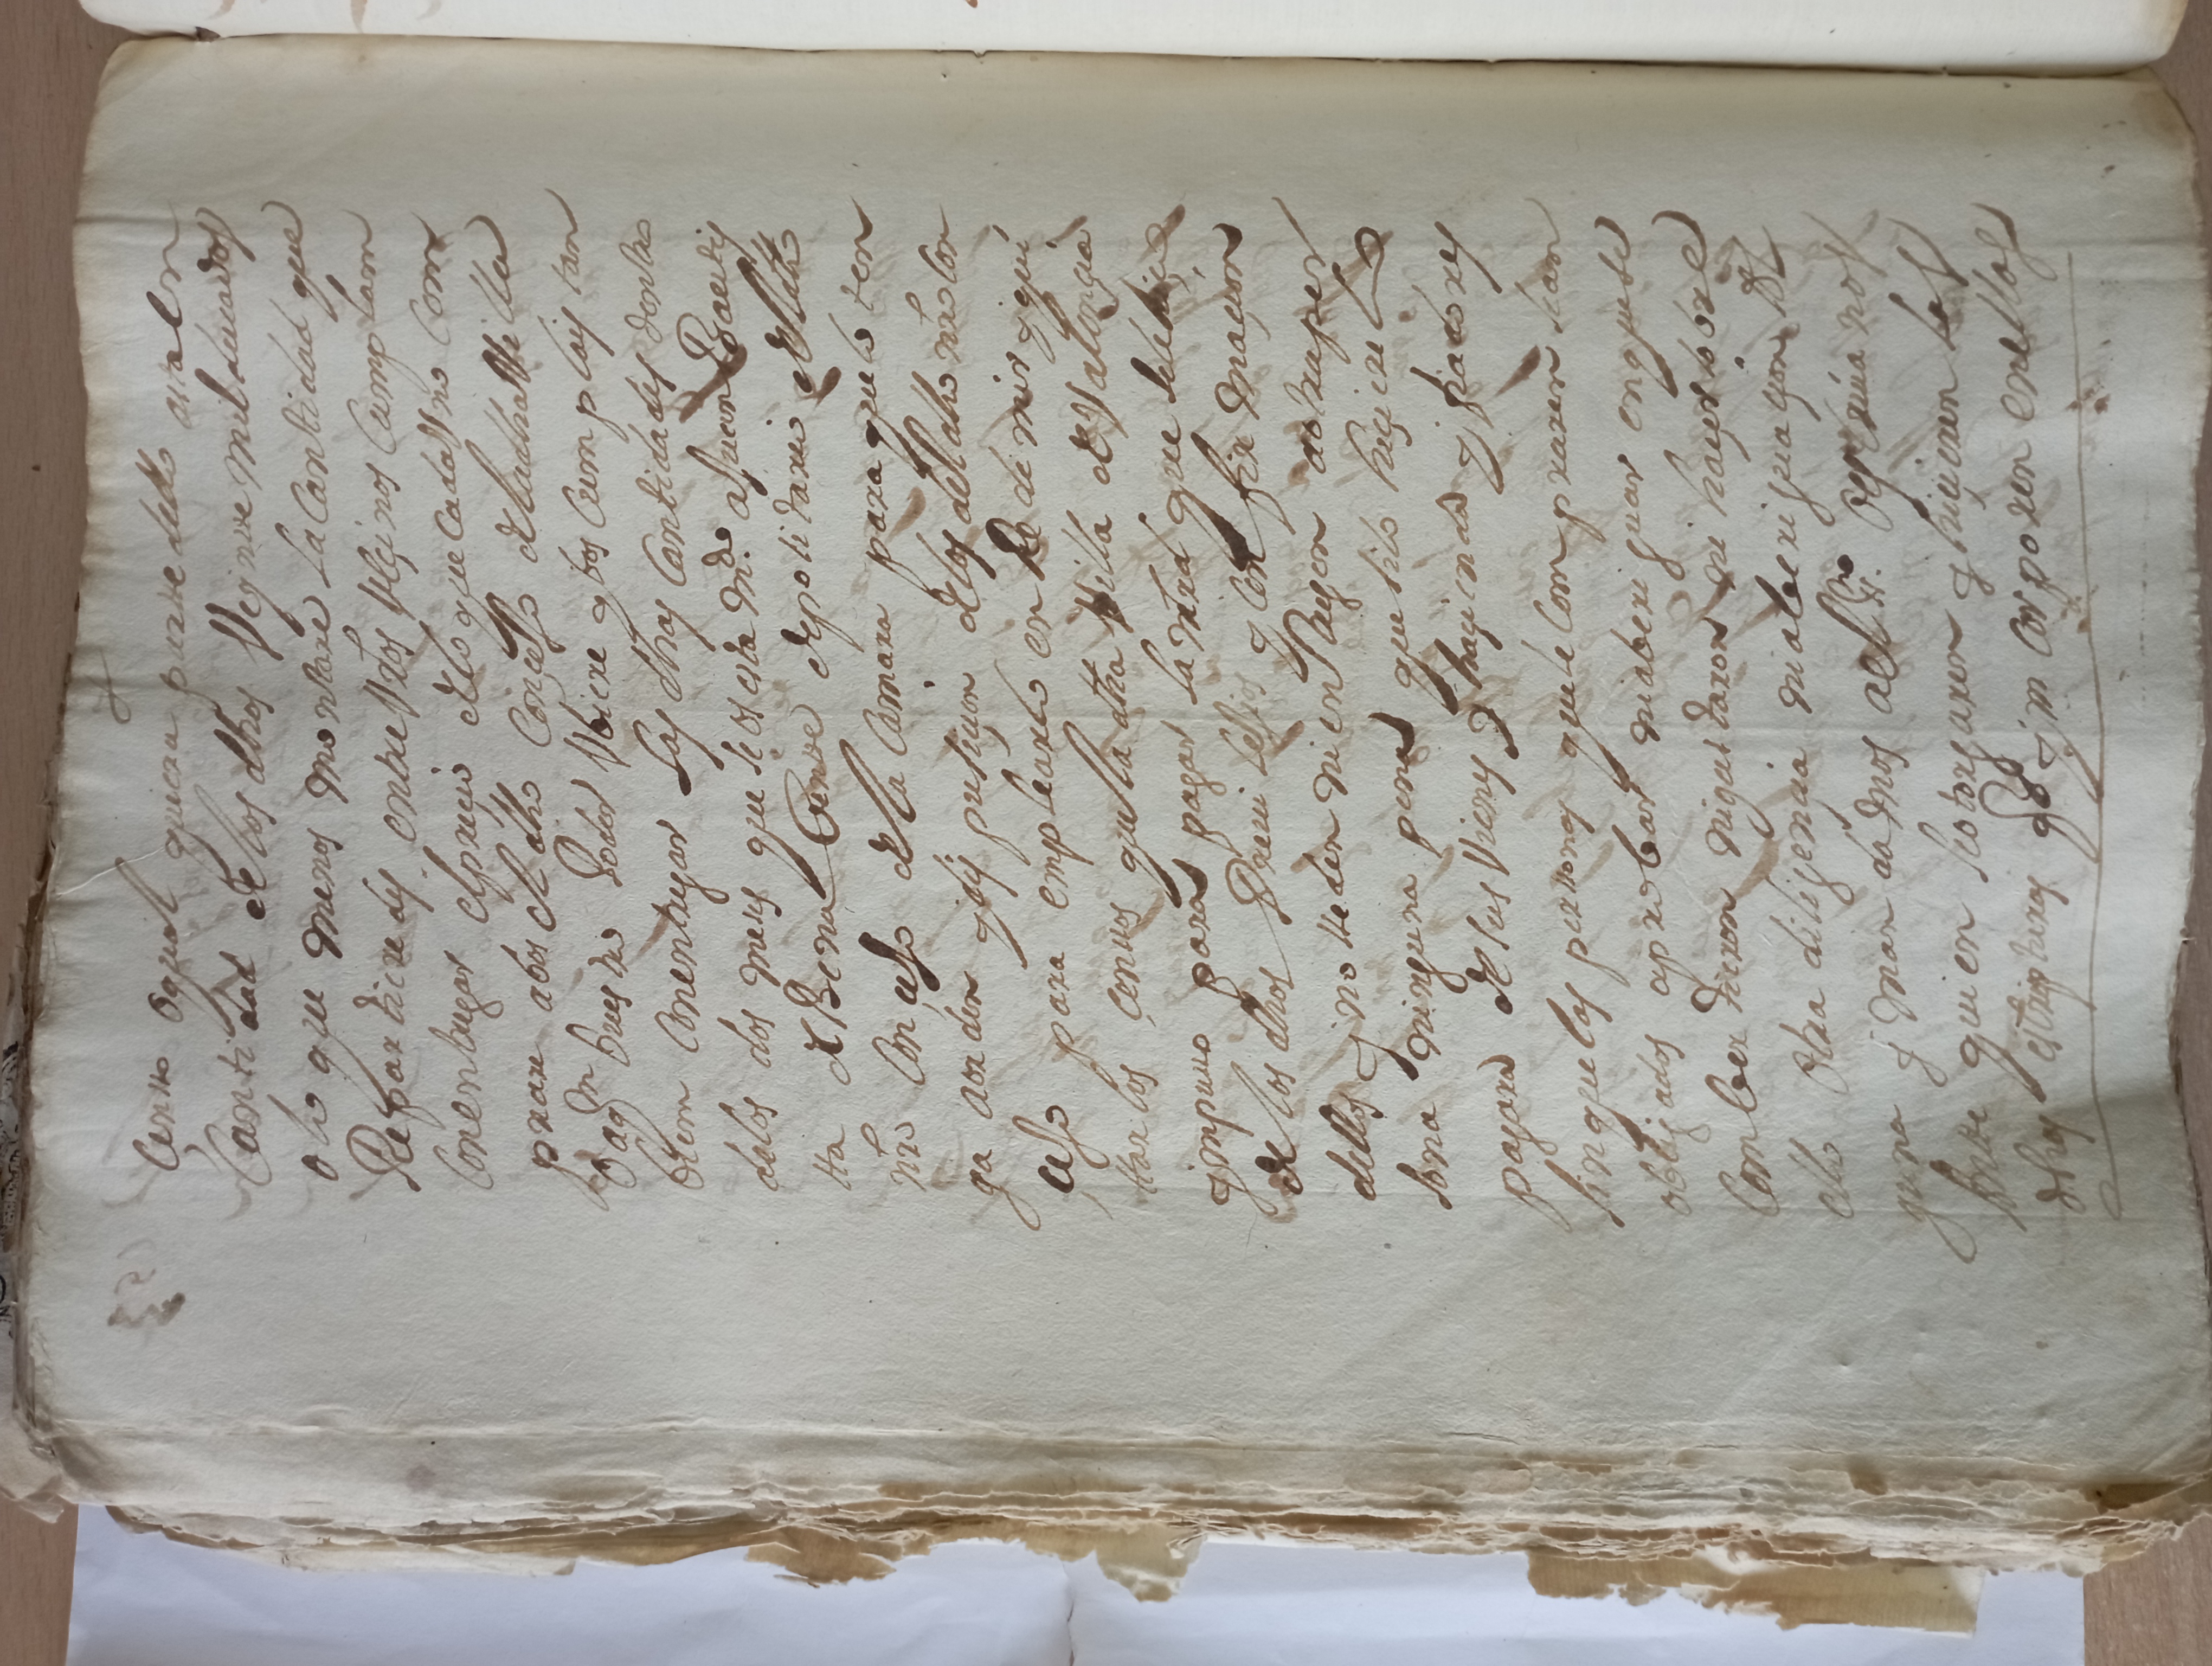 Çensso o qual quiera partte dello asta en
Cantidad de los dhos Veynte mil ducados
o lo que menos montare La Cantidad que
Repartieredes entre Vros Veçinos Cumplan
Con entregar el preçio de lo que cada Vno Com
prare a bos el dho Conçejo de la dha Villa
o a qn buestro Poder Vbiere y bos Cumplais tan
bien Con entregar Las dhas Cantidades dentro
de los dos meses que se os esta mdo a Juan Bautis
tta de Benabente depositario del dho
nro Consejo de la Camara para que lo ten
ga a orden y disposiçion de los del dho nro Con
sejo para emplearlo en Redemir y qui
ttar los çenssos que la dha Villa de Valençia
ympusso para pagar La mrd que se le hiço
de los dhos Preuilejios y Confirmaçion
dellos y no tteden ni en Paguen a otra per
sona ninguna pena que si lo hiçiere Lo
pagara de sus Vienes y haçienda y fiadores
sin que las perssonas que le Compraren sean
obligados a probar ni aberiguar en que se
Combertieron ni gastaron ni haçer sobre
ello Otra diligençia ni aberiguaçion Al
guna y mandamos a el sno o escriuanos
Antte quien se otorgaren y hiçieren Las
dhas escripturas que yncorporen en ellas